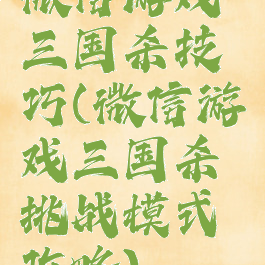 微信游戏
三国杀技
巧(微信游
戏三国杀
挑战模式
攻略)